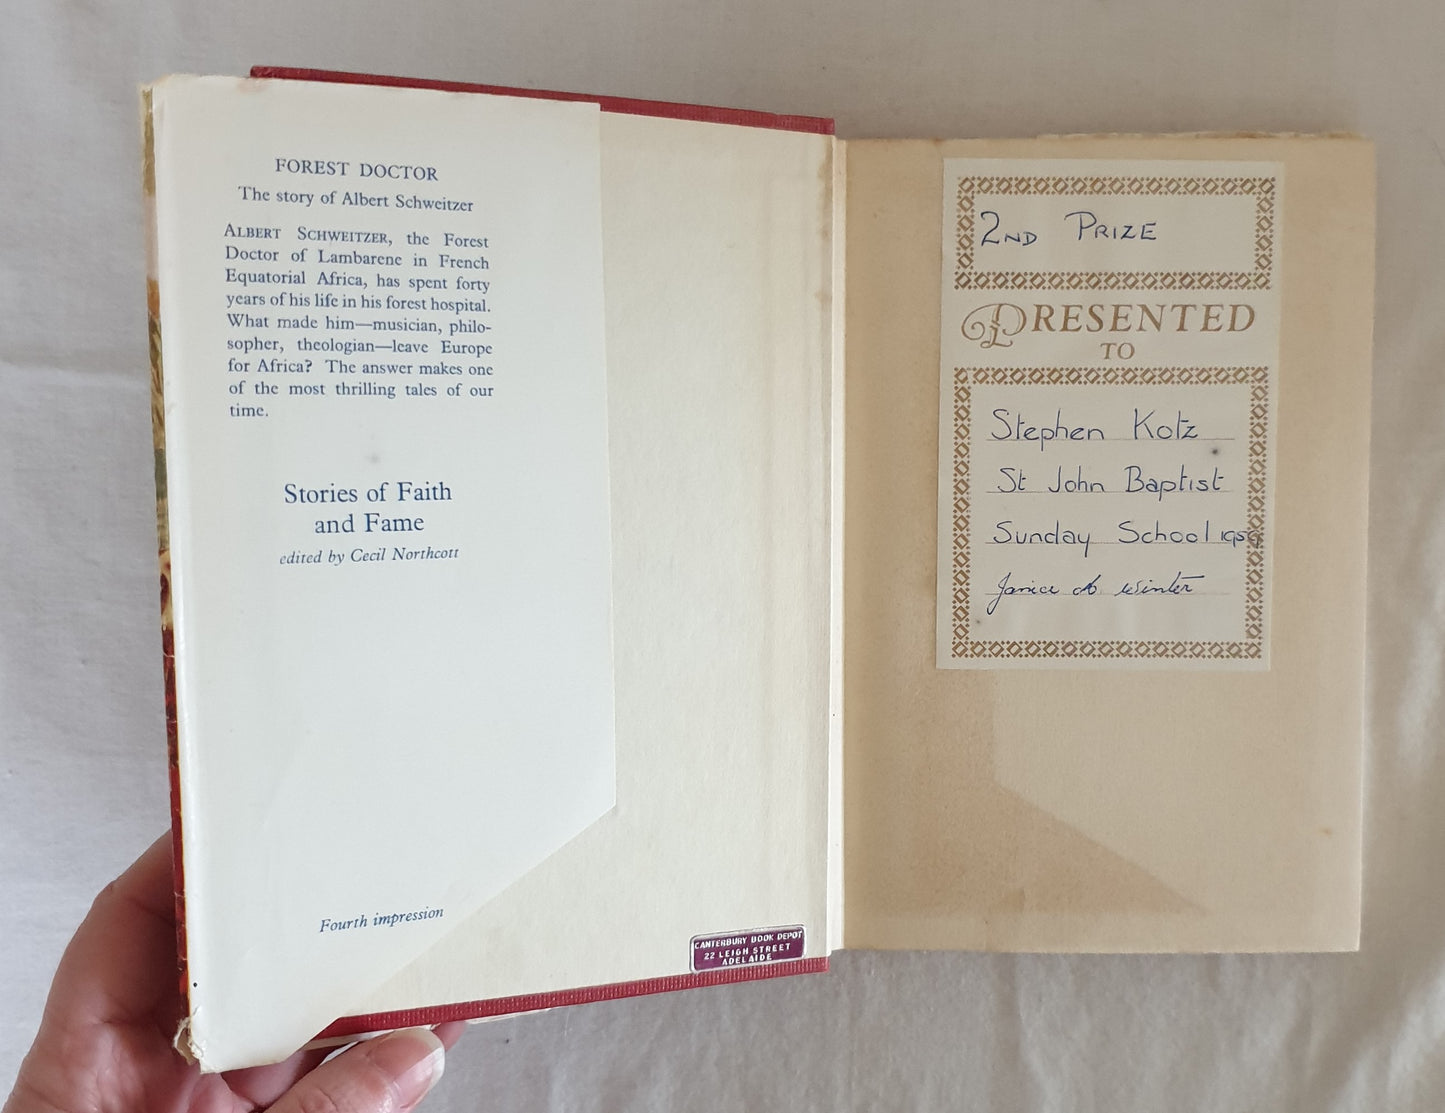 FOREST DOCTOR
The story of Albert Schweitzer
ALBERT SCHWEITZER, the Forest
Doctor of Lambarene in French
Equatorial Africa, has spent forty
years of his life in his forest hospital.
What made him—musician, philo-
sopher, theologian—leave Europe
for Africa? The answer makes one
of the most thrilling tales of our
time.
Stories of Faith
and Fame
edited by Cecil Northcott
Fourth impression
CANTERBURY BOOK DEPOT
22 LEIGH STREET
ADELAIDE
2ND PRIZE
PRESENTED
TO
Stephen Kotz
St John Baptist
Sunday School 1959
Janice A. Winter